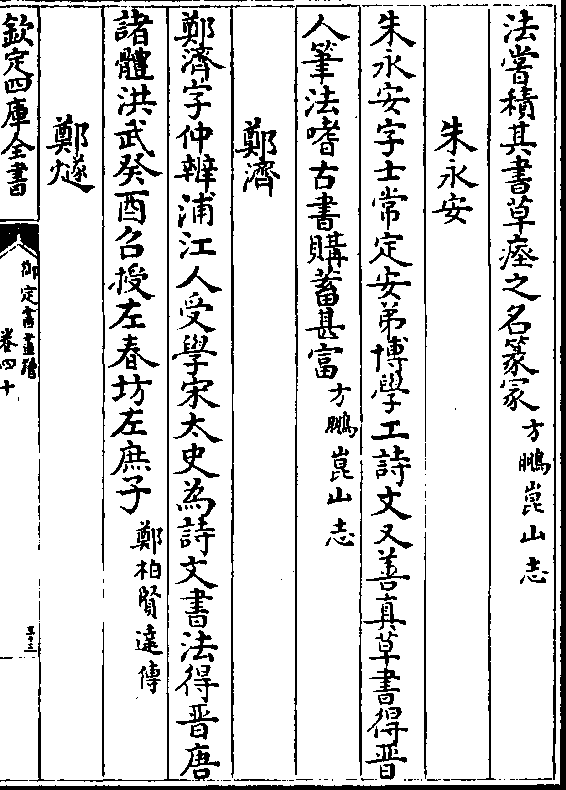 法嘗積其書草瘞之名篆冢方鵬崑山志
朱永安
朱永安字士常定安弟博學工詩文又善真草書得晉
人筆法嗜古書購蓄甚富方鵬崑山志
鄭濟
鄭濟字仲辨浦江人受學宋太史為詩文書法得晉唐
諸體洪武癸酉召授左春坊左庶子鄭柏賢達傳
鄭燧
欽定四庫全書
御定書畫譜
卷四十